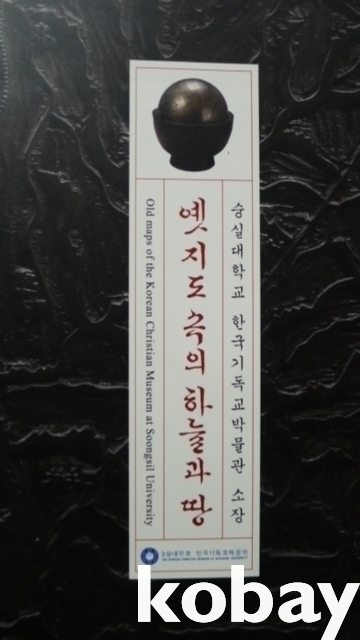 숭실대학교 한국기독교박물관 소장
옛지도 속의 하늘과 땅
Old maps of the Korean Christian Museum at Soongsil University
숭실대학교 한국기독교박물관
THE KOREAN CHRISTIAN MUSEUM AT SOONGSIL UNIVERSITY
kobay